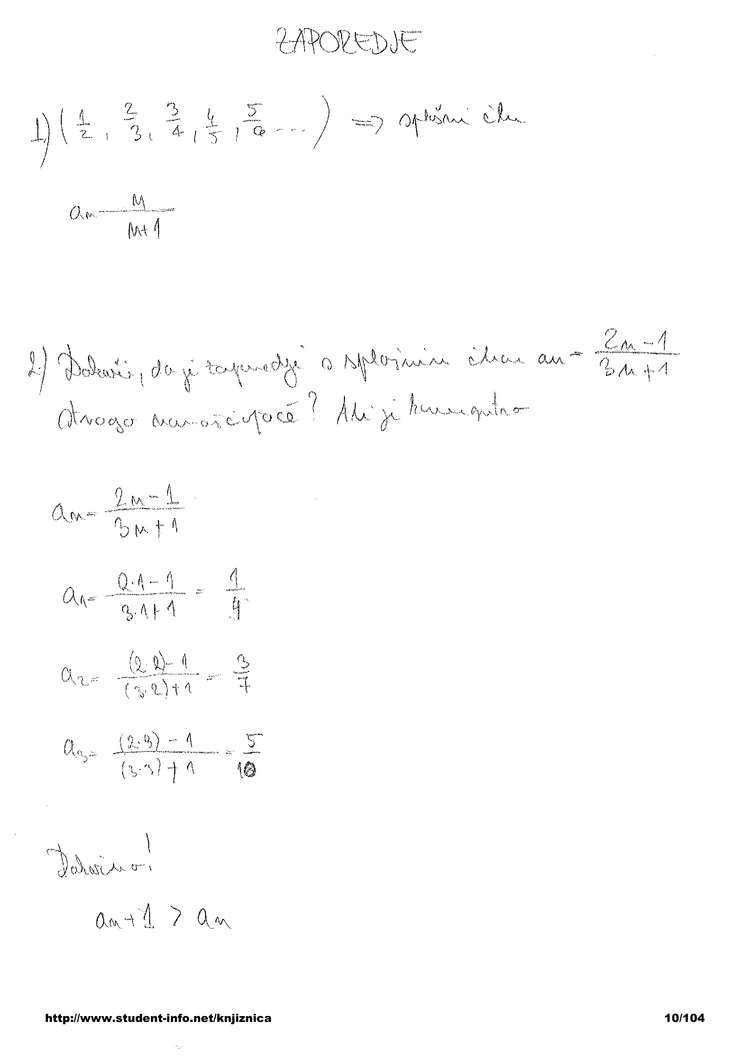 ZAPOREDJE
1) (1/2, 2/3, 3/4, 4/5, 5/6 ...) => splošni člen
an = n/n+1
2.) Dokaži, da je zaporedje s splošnim členom an = 2n-1/3n+1
strogo naraščajoče? Ali je konvergentno
an = 2n-1/3n+1
a1 = 2·1-1/3·1+1 = 1/4
a2 = (2·2)-1/(3·2)+1 = 3/7
a3 = (2·3)-1/(3·3)+1 = 5/10
Dokažimo!
an+1 > an
http://www.student-info.net/knjiznica 10/104